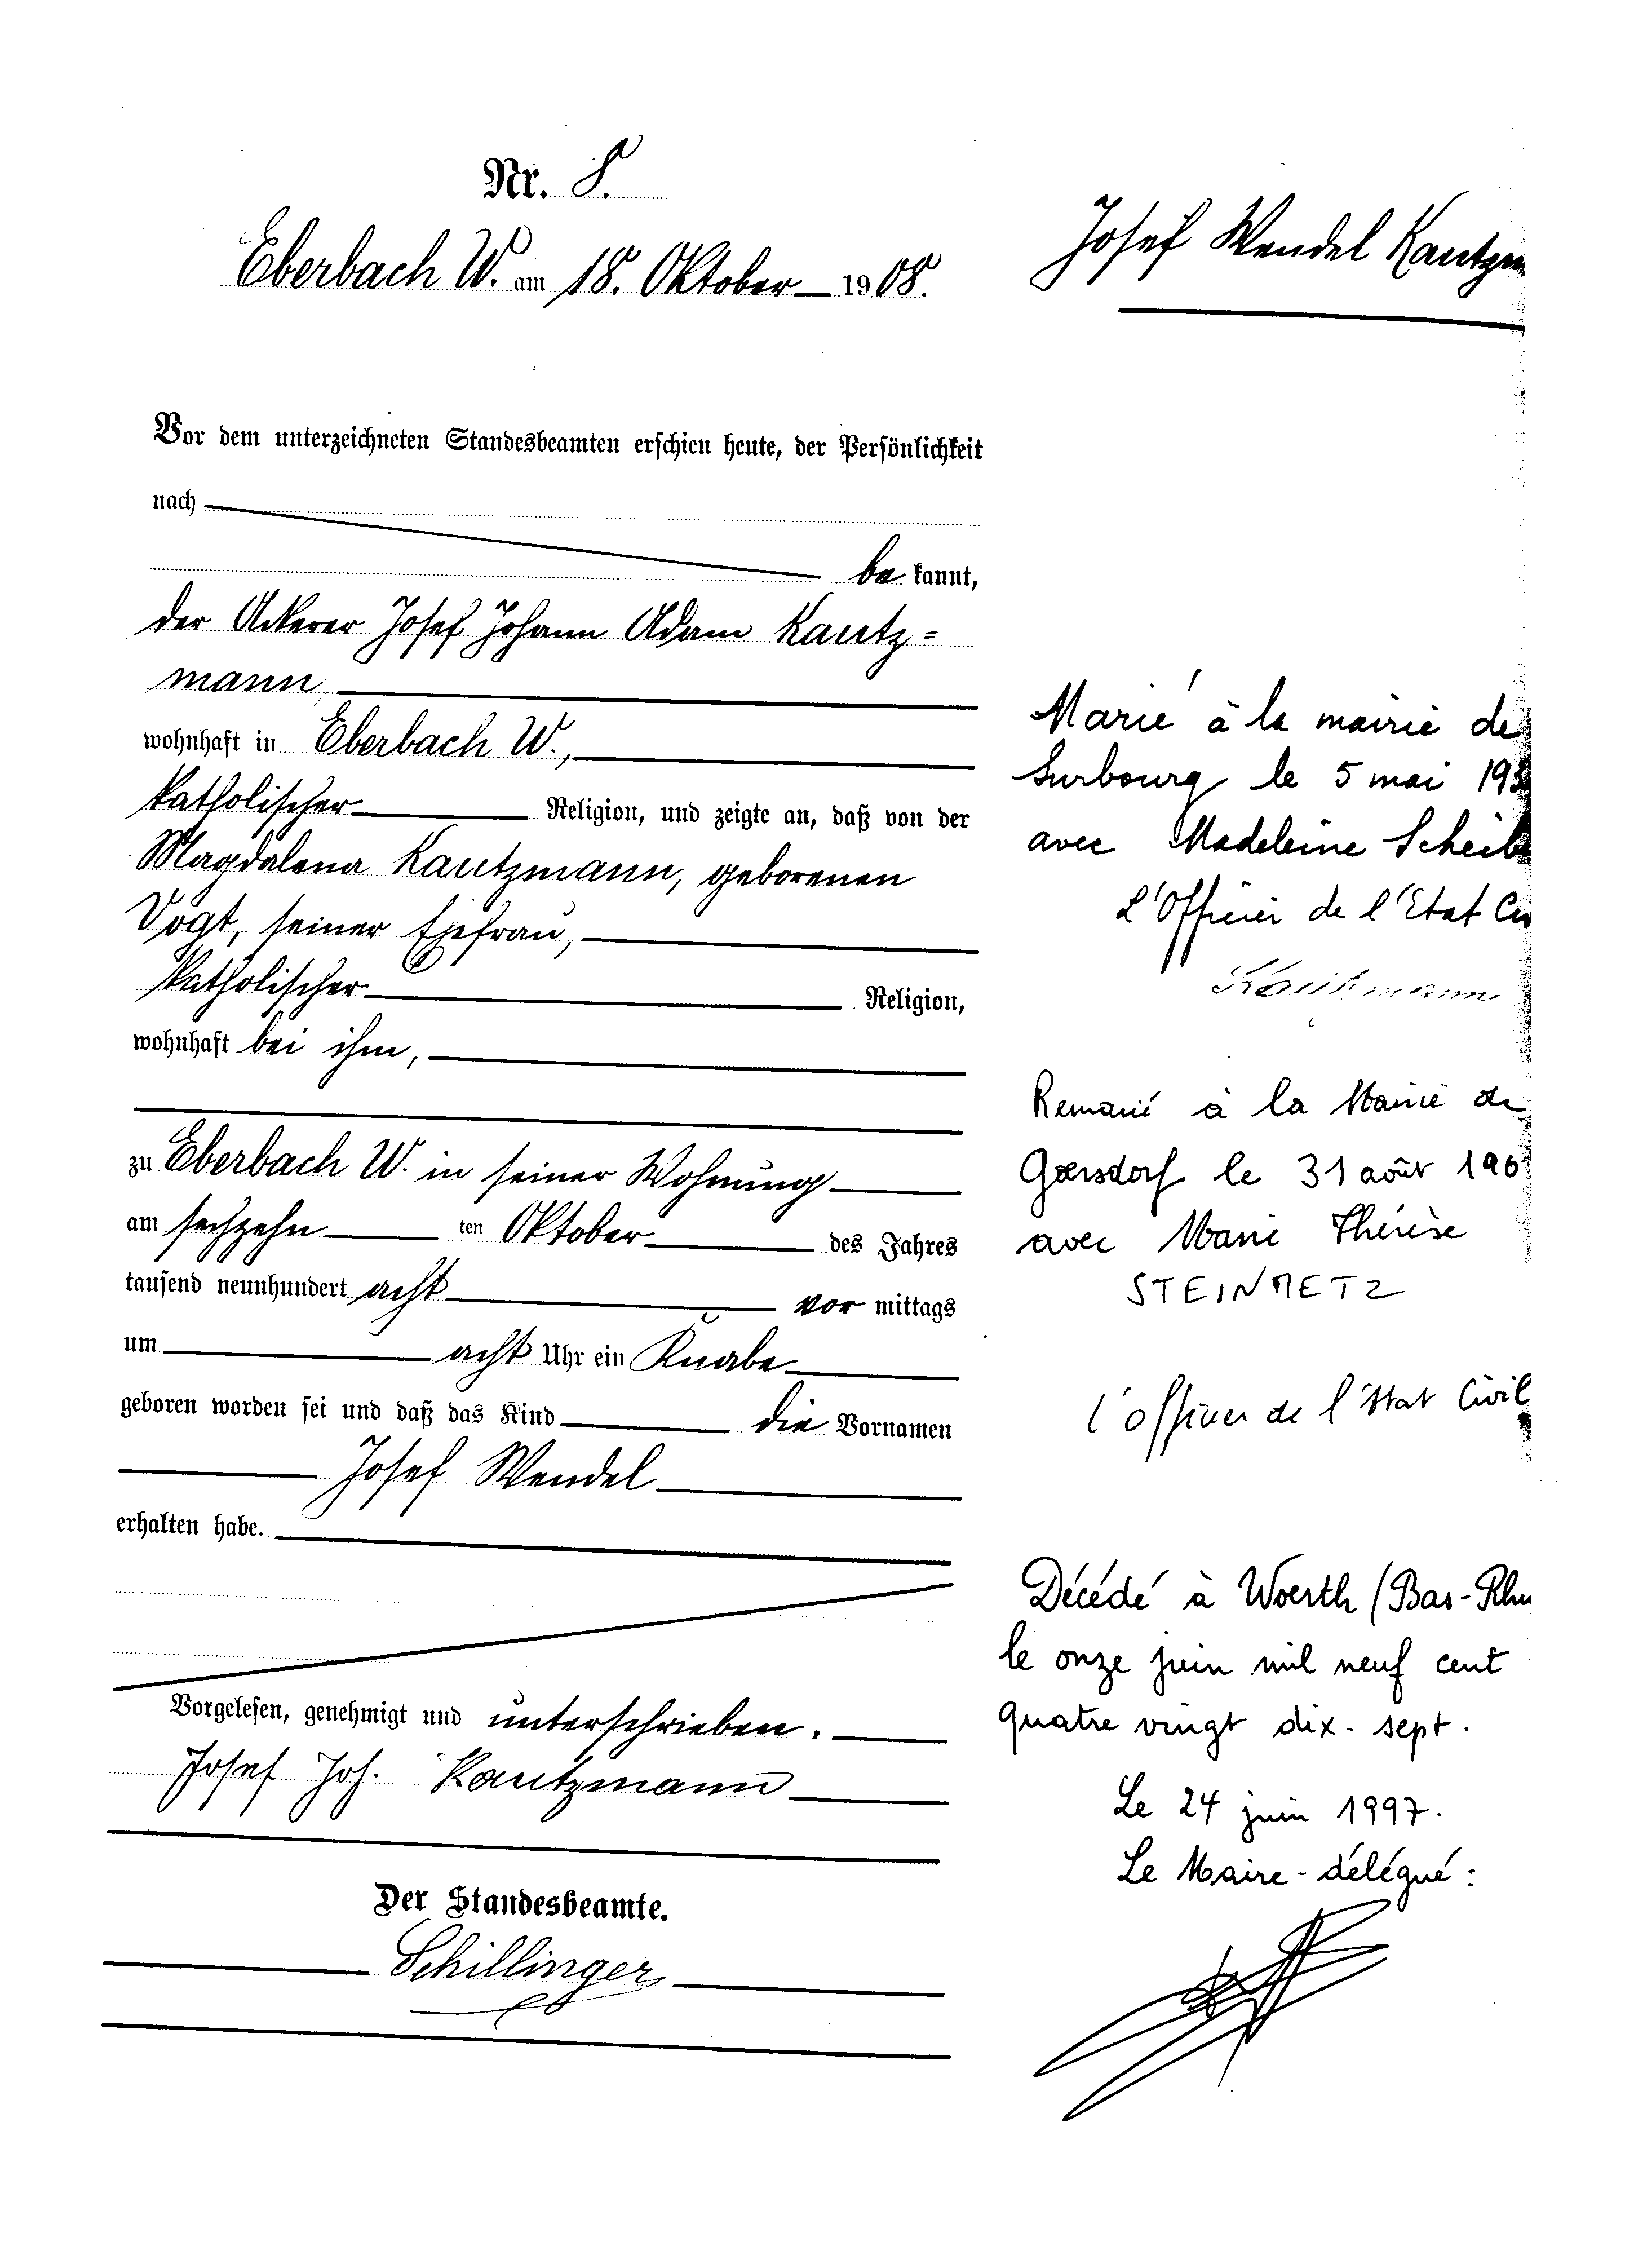 Nr. 8.
Eberbach W. am 18. Oktober 1908.
Vor dem unterzeichneten Standesbeamten erschien heute, der Persönlichkeit
nach
be kannt,
der Ackerer Josef Johann Adam Kautz=
mann
wohnhaft in Eberbach W.,
katholischer Religion, und zeigte an, daß von der
Magdalena Kautzmann, geborenen
Vogt, seiner Ehefrau,
katholischer Religion,
wohnhaft bei ihm,
zu Eberbach W. in seiner Wohnung
am sechzehn ten Oktober des Jahres
tausend neunhundert acht vor mittags
um acht Uhr ein Knabe
geboren worden sei und daß das Kind die Vornamen
Josef Wendel
erhalten habe.
Vorgelesen, genehmigt und unterschrieben.
Josef Joh. Kautzmann
Der Standesbeamte.
Schillinger
Josef Wendel
Marié à la mairie de
Surbourg le 5 mai
avec Madeleine
L'Officier de l'Etat
Remarié à la Mairie de
Goersdorf le 31 août
avec Marie Thérèse
STEINMETZ
l'officier de l'Etat Civil
Décédé à Woerth (Bas-
le onze juin mil neuf cent
quatre vingt dix-sept.
Le 24 juin 1997.
Le Maire-délégué: